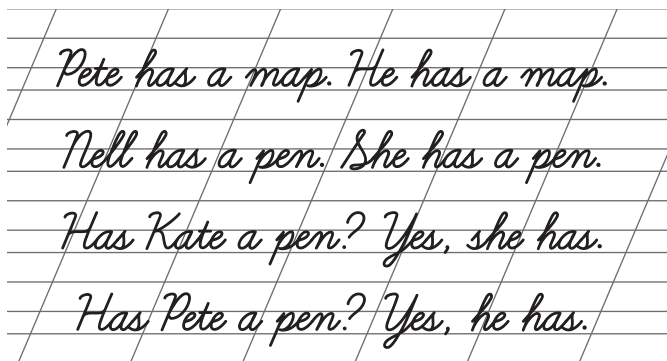 Pete has a map. He has a map.
Nell has a pen. She has a pen.
Has Kate a pen? Yes, she has.
Has Pete a pen? Yes, he has.